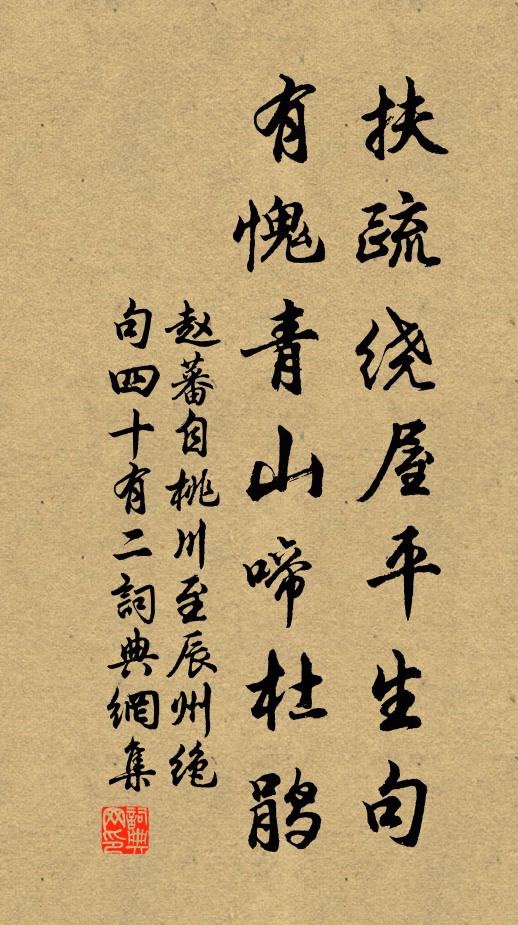 扶疏绕屋平生句
有愧青山啼杜鹃
赵蕃自桃川至辰州绝
句四十有二詞典網集
詞典
网印